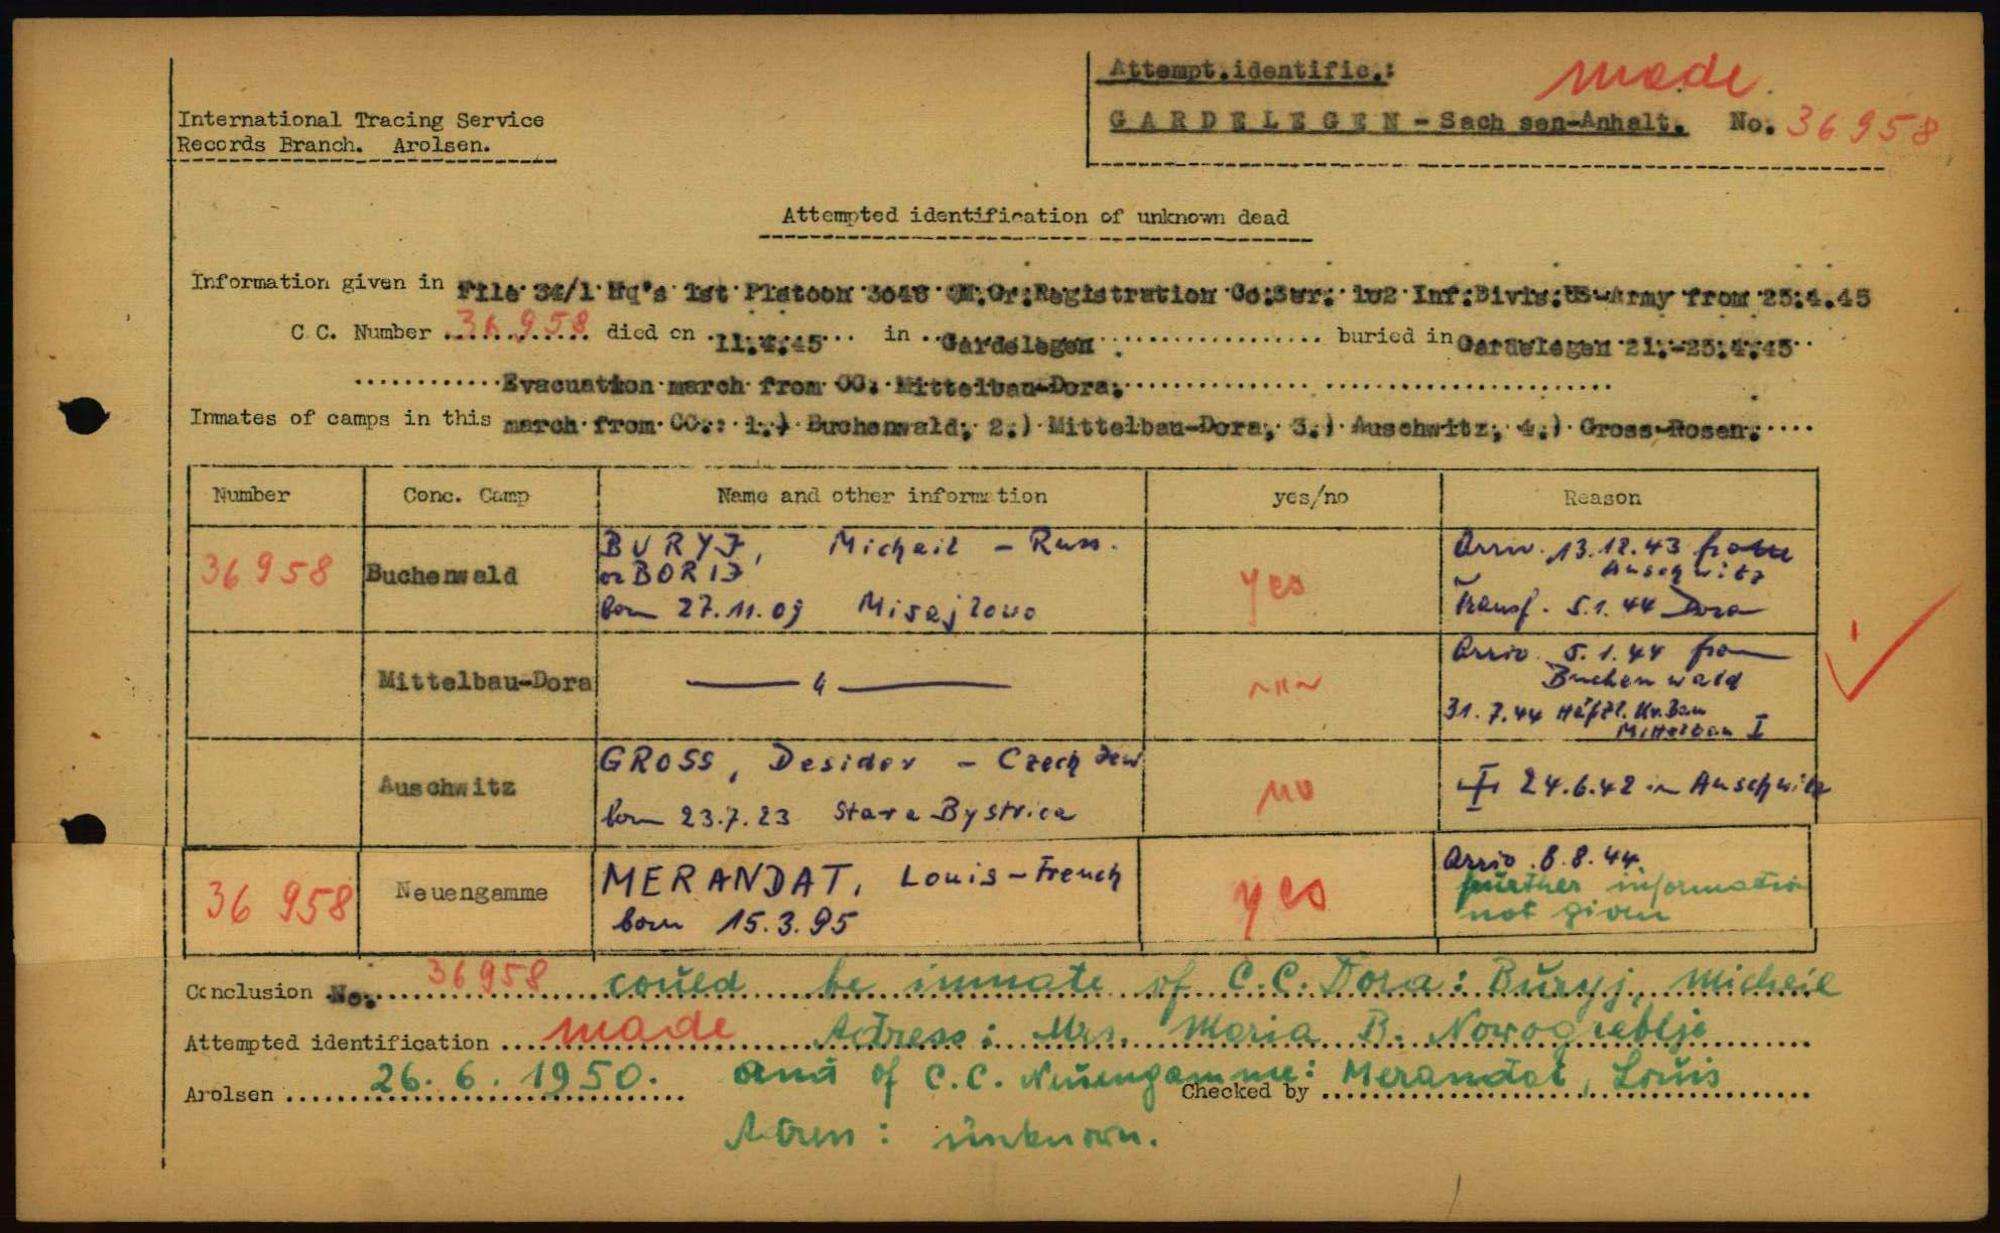 Attempt.identific.: made.
International Tracing Service
GARDELEGEN - Sachsen-Anhalt. No. 36958
Records Branch. Arolsen.
Attempted identification of unknown dead
Information given in File 34/1 Hq's 1st Platoon 3048 QM.Gr.Registration Co.Ser. 102 Inf.Divis.US-Army from 25.4.45
C.C. Number 36958 died on 11.4.45 in Gardelegen buried in Gardelegen 21.-25.4.45
Evacuation march from CC. Mittelbau-Dora.
Inmates of camps in this march from CC.: 1.) Buchenwald, 2.) Mittelbau-Dora, 3.) Auschwitz, 4.) Gross-Rosen.
Number Conc. Camp Name and other information yes/no Reason
BURYJ, Micheil - Russ. Arriv. 13.12.43 from
36958 Buchenwald or BORIJ yes Auschwitz
born 27.11.09 Misajlowo Transf. 5.1.44 Dora
Arriv. 5.1.44 from
Mittelbau-Dora — " — ~"~ Buchenwald
31.7.44 Häftl. Kr.Bau
Mittelbau I
GROSS, Desider - Czech Jew
Auschwitz no 24.6.42 in Auschwitz
born 23.7.23 Stara Bystrica
MERANDAT, Louis - French Arriv. 8.8.44
36958 Neuengamme yes further information
born 15.3.95 not given
Conclusion No. 36958 could be inmate of C.C. Dora: Buryj, Micheil
Attempted identification made Adress: Mrs. Maria B. Nowogreblje
Arolsen 26.6.1950. and of C.C. Neuengamme: Merandat, Louis
Checked by
Adress: unknown.